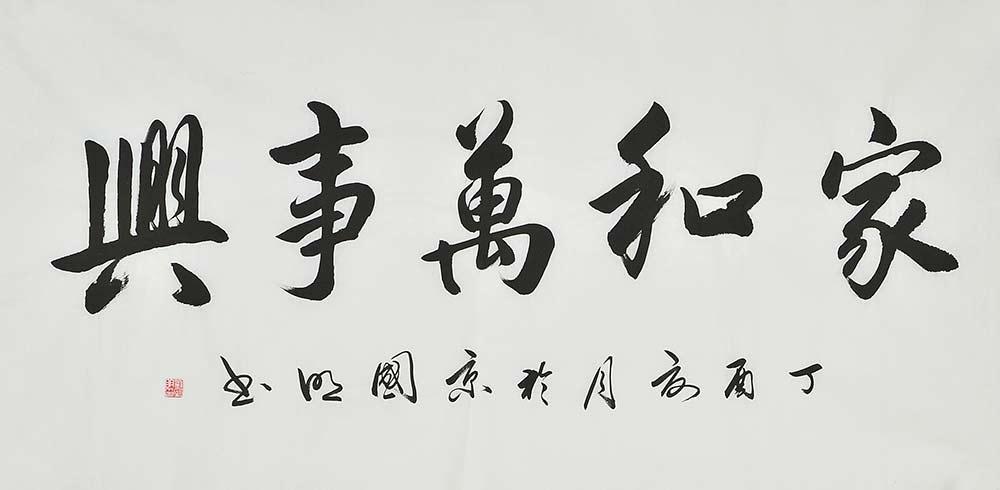 家和萬事興
丁酉亥月於京國明书